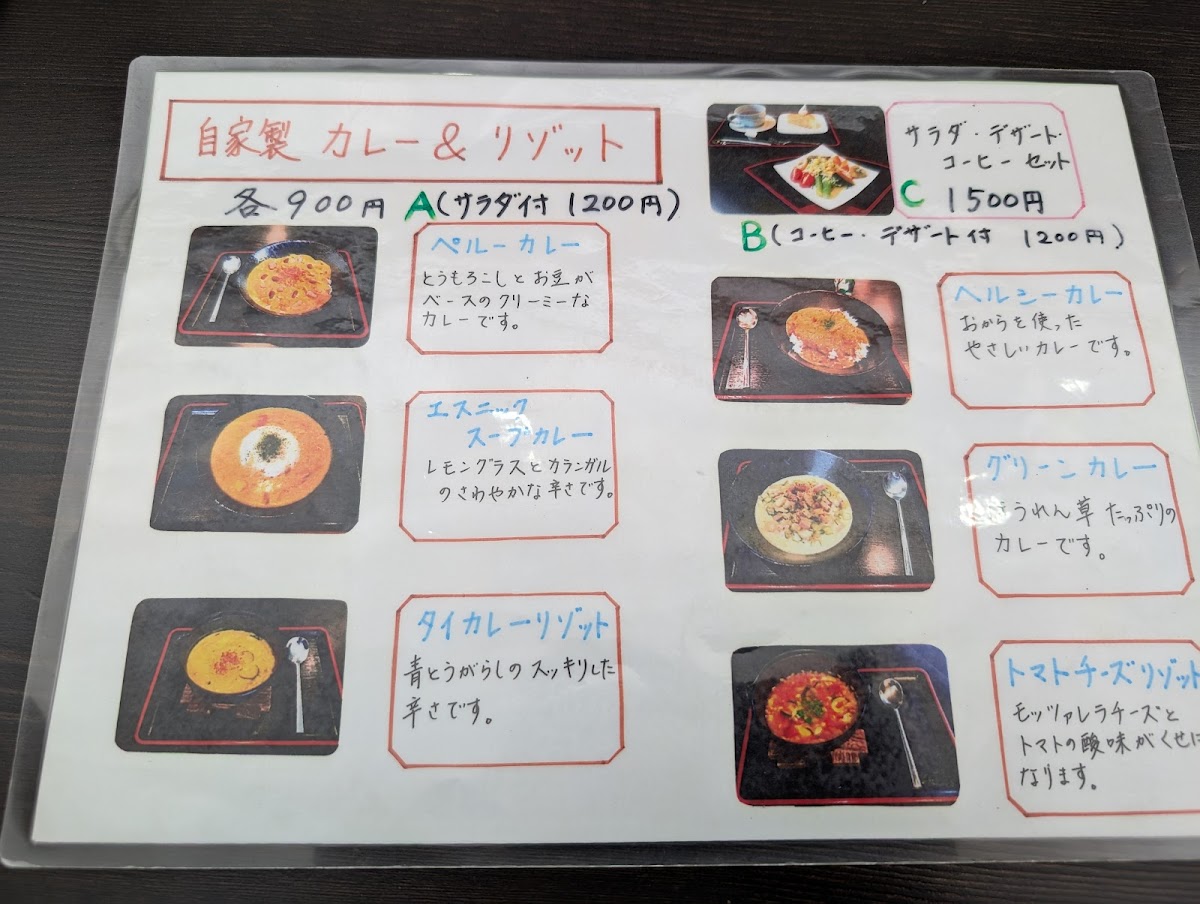 自家製 カレー & リゾット
各900円 A(サラダ付 1200円)
サラダ・デザート・
コーヒー セット
C 1500円
B(コーヒー・デザート付 1200円)
ペルーカレー
とうもろこしとお豆が
ベースのクリーミーな
カレーです。
ヘルシーカレー
おからを使った
やさしいカレーです。
エスニック
スープカレー
レモングラスとカランガル
のさわやかな辛さです。
グリーンカレー
うれん草 たっぷりの
カレーです。
タイカレーリゾット
青とうがらしのスッキリした
辛さです。
トマトチーズリゾット
モッツァレラチーズと
トマトの酸味がくせに
なります。